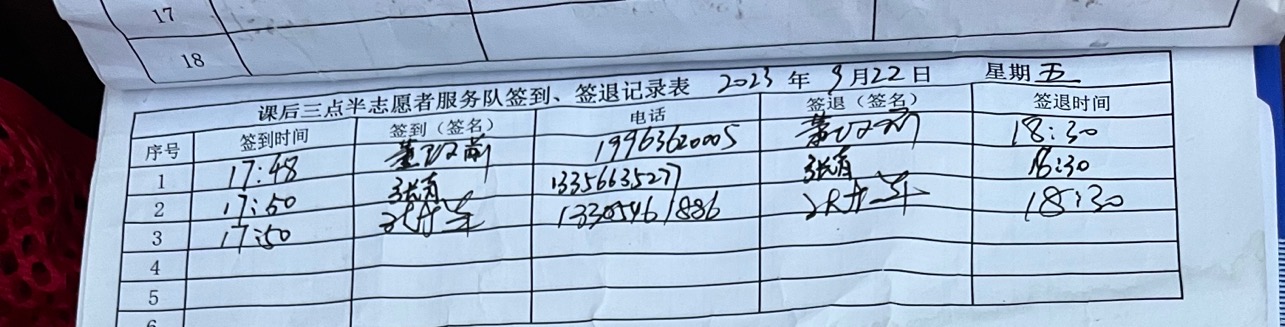 17
18
课后三点半志愿者服务队签到、签退记录表 2023 年 9月22日 星期五
序号 签到时间 签到（签名） 电话 签退（签名） 签退时间
1 17:48 19963620005 18:30
2 17:50 张青 13356635277 张青 18:30
3 17:50 13305461886 18:30
4
5
6